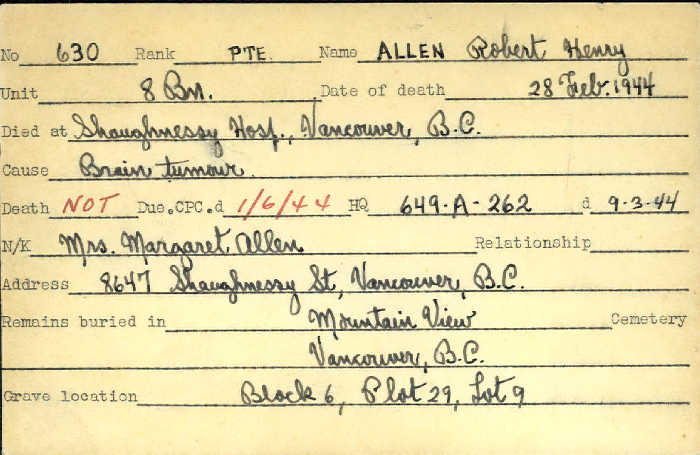 No 630 Rank PTE. Name ALLEN Robert Henry
Unit 8 Bn. Date of death 28 Feb. 1944
Died at Shaughnessy Hosp., Vancouver, B.C.
Cause Brain tumour.
Death NOT Due.CPC.d 1/6/44 HQ 649-A-262 d 9-3-44
N/K Mrs. Margaret Allen Relationship
Address 8647 Shaughnessy St, Vancouver, B.C.
Remains buried in Mountain View Cemetery
Vancouver, B.C.
Grave location Block 6, Plot 29, Lot 9